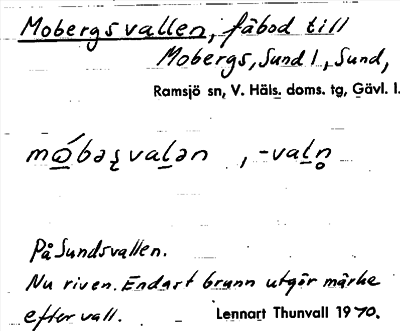 Mobergsvallen, fäbod till
Mobergs, Sund 1, Sund,
Ramsjö sn, V. Häls. doms. tg, Gävl. l.
På Sundsvallen.
Nu riven. Endast brunn utgör märke
efter vall. Lennart Thunvall 1970.